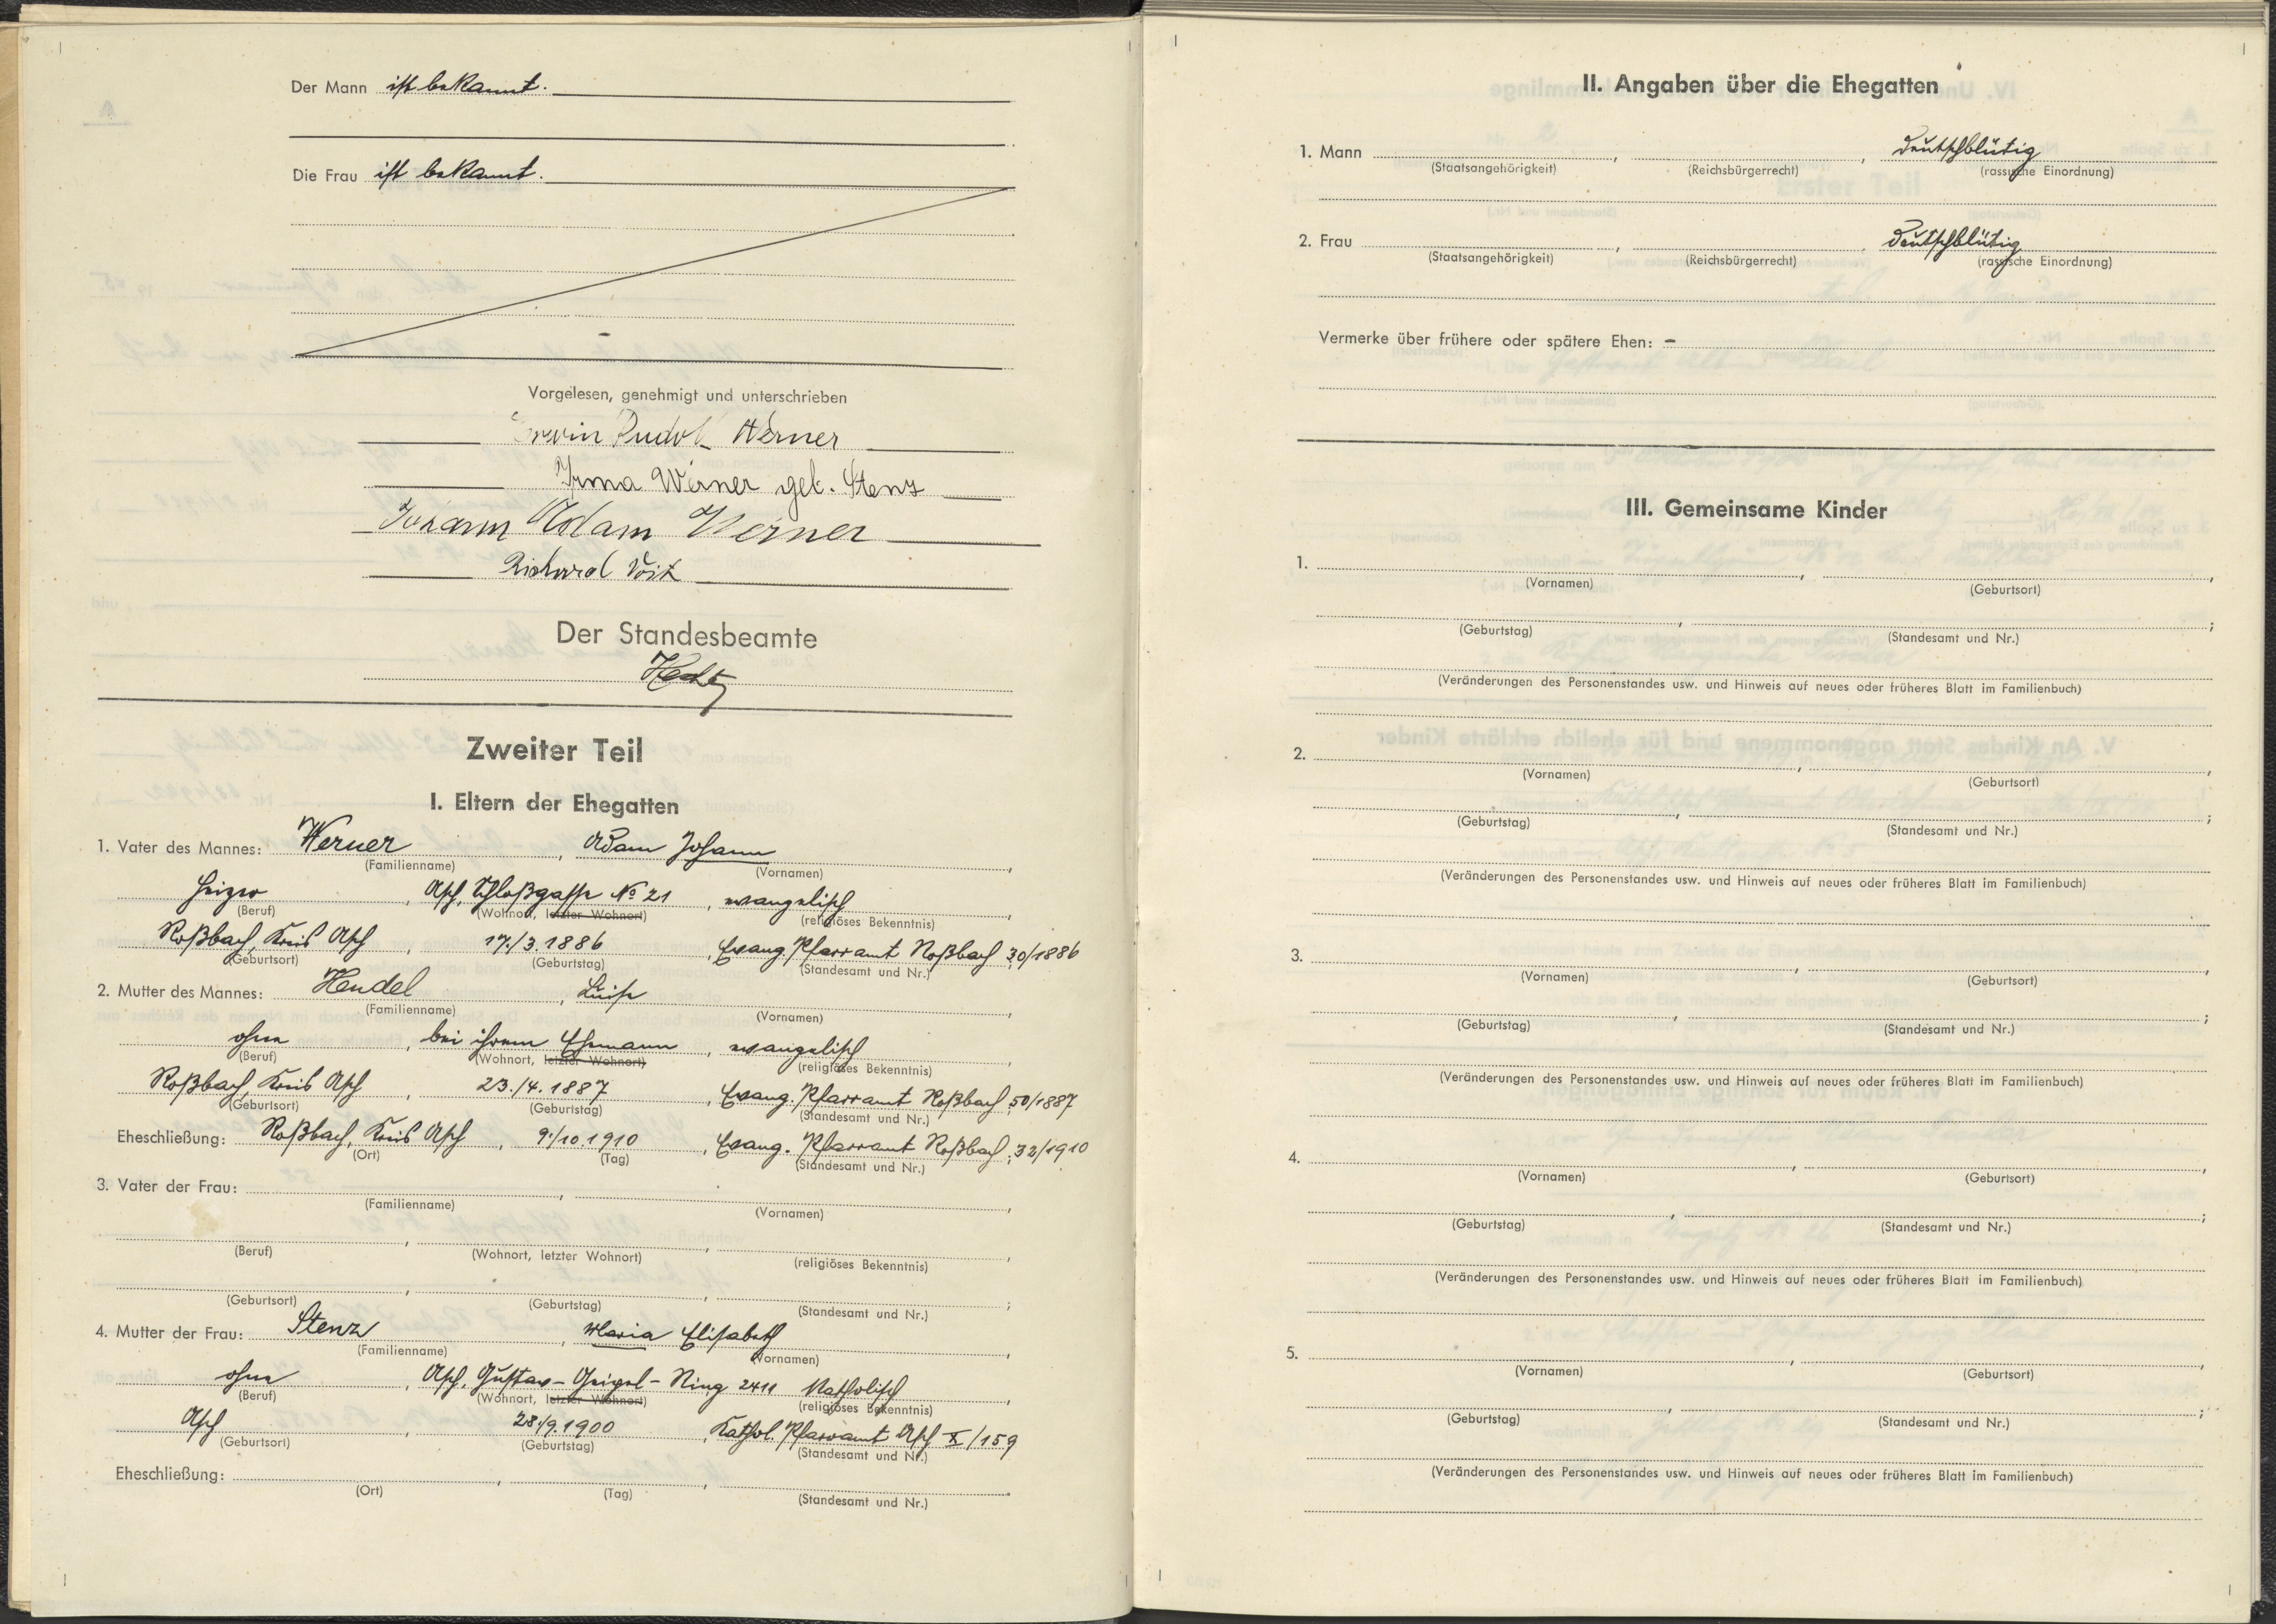 Der Mann ist bekannt.
Die Frau ist bekannt.
Vorgelesen, genehmigt und unterschrieben
Erwin Rudolf Werner
Irma Werner geb. Stenz
Johann Adam Werner
Richard Voit
Der Standesbeamte
Zweiter Teil
I. Eltern der Ehegatten
1. Vater des Mannes: Werner, Adam Johann,
(Familienname) (Vornamen)
Heizer, Asch, Schloßgasse No 21, evangelisch,
(Beruf) (Wohnort, letzter Wohnort) (religiöses Bekenntnis)
Roßbach, Kreis Asch, 17./3.1886, Evang. Pfarramt Roßbach 30/1886
(Geburtsort) (Geburtstag) (Standesamt und Nr.)
2. Mutter des Mannes: Hendel, Luise,
(Familienname) (Vornamen)
ohne, bei ihrem Ehemann, evangelisch,
(Beruf) (Wohnort, letzter Wohnort) (religiöses Bekenntnis)
Roßbach, Kreis Asch, 23./4.1887, Evang. Pfarramt Roßbach; 50/1887
(Geburtsort) (Geburtstag) (Standesamt und Nr.)
Eheschließung: Roßbach, Kreis Asch, 9./10.1910, Evang. Pfarramt Roßbach; 32/1910
(Ort) (Tag) (Standesamt und Nr.)
3. Vater der Frau: , ,
(Familienname) (Vornamen)
(Beruf) (Wohnort, letzter Wohnort) (religiöses Bekenntnis)
(Geburtsort) (Geburtstag) (Standesamt und Nr.)
4. Mutter der Frau: Stenz, Maria Elisabeth,
(Familienname) (Vornamen)
ohne, Asch, Gustav-Geipel-Ring 2411 katholisch,
(Beruf) (Wohnort, letzter Wohnort) (religiöses Bekenntnis)
Asch, 28./9.1900, Kathol. Pfarramt Asch X/159
(Geburtsort) (Geburtstag) (Standesamt und Nr.)
Eheschließung: , , .
(Ort) (Tag) (Standesamt und Nr.)
II. Angaben über die Ehegatten
1. Mann , , deutschblütig
(Staatsangehörigkeit) (Reichsbürgerrecht) (rassische Einordnung)
2. Frau , , deutschblütig
(Staatsangehörigkeit) (Reichsbürgerrecht) (rassische Einordnung)
Vermerke über frühere oder spätere Ehen: -
III. Gemeinsame Kinder
1. , ,
(Vornamen) (Geburtsort)
(Geburtstag) (Standesamt und Nr.)
(Veränderungen des Personenstandes usw. und Hinweis auf neues oder früheres Blatt im Familienbuch)
2. , ,
(Vornamen) (Geburtsort)
(Geburtstag) (Standesamt und Nr.)
(Veränderungen des Personenstandes usw. und Hinweis auf neues oder früheres Blatt im Familienbuch)
3. , ,
(Vornamen) (Geburtsort)
(Geburtstag) (Standesamt und Nr.)
(Veränderungen des Personenstandes usw. und Hinweis auf neues oder früheres Blatt im Familienbuch)
4. , ,
(Vornamen) (Geburtsort)
(Geburtstag) (Standesamt und Nr.)
(Veränderungen des Personenstandes usw. und Hinweis auf neues oder früheres Blatt im Familienbuch)
5. , ,
(Vornamen) (Geburtsort)
(Geburtstag) (Standesamt und Nr.)
(Veränderungen des Personenstandes usw. und Hinweis auf neues oder früheres Blatt im Familienbuch)